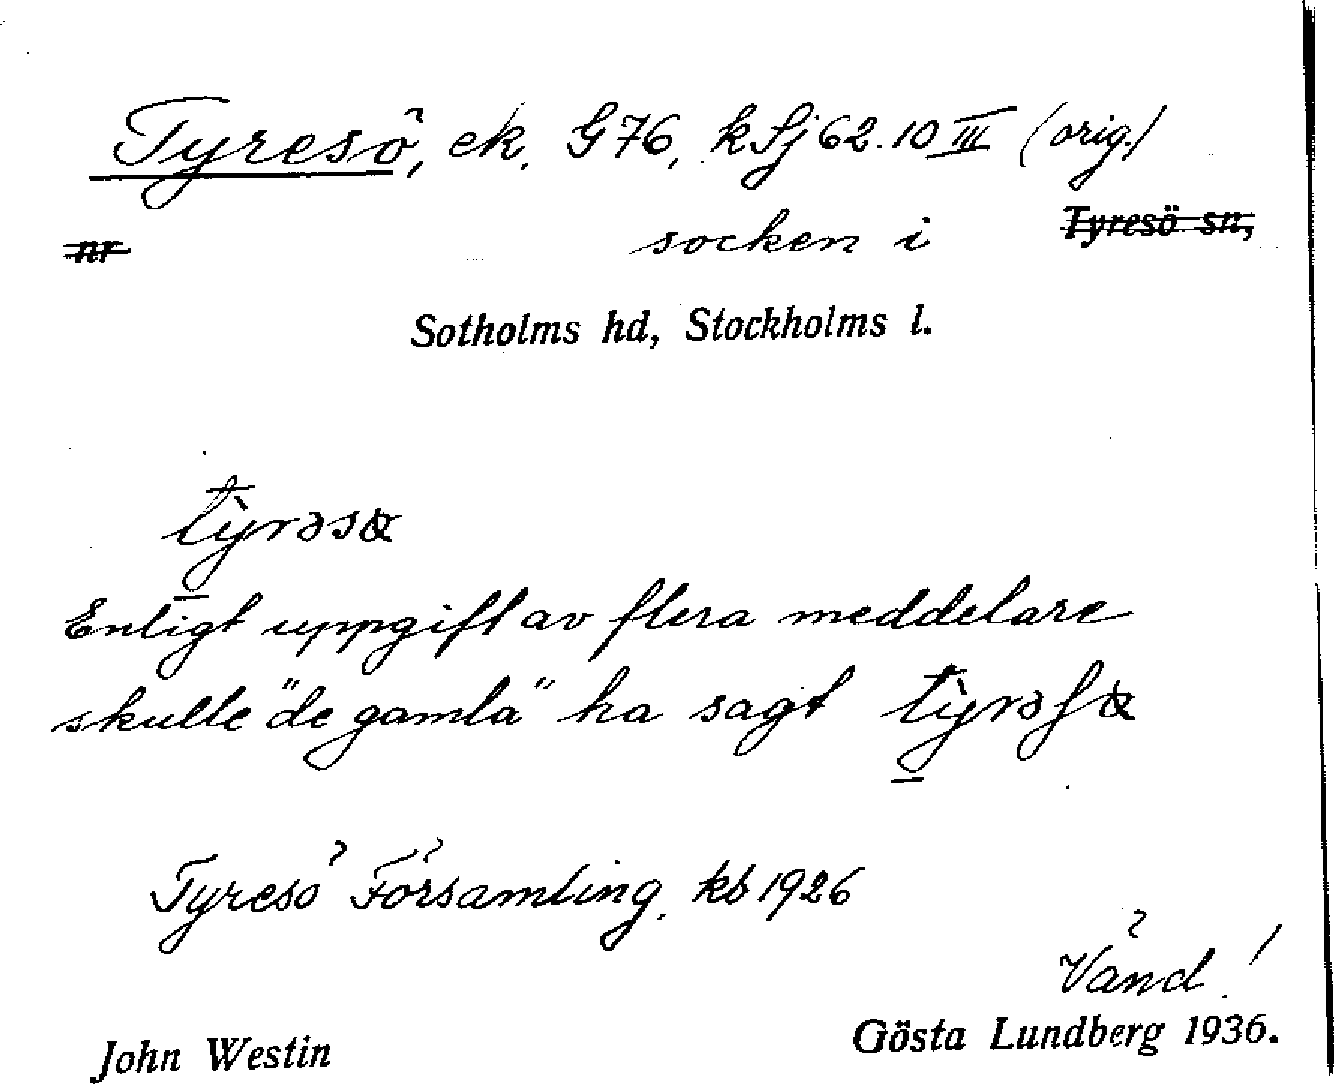 Tyresö, ek. G76, kSj 62.10 III (orig.)
nr socken i Tyresö sn,
Sotholms hd, Stockholms l.
tỳrəsø
Enligt uppgift av flera meddelare
skulle "de gamla" ha sagt tỳrəʃø
Tyresö Församling. kb 1926
Vänd!
John Westin Gösta Lundberg 1936.